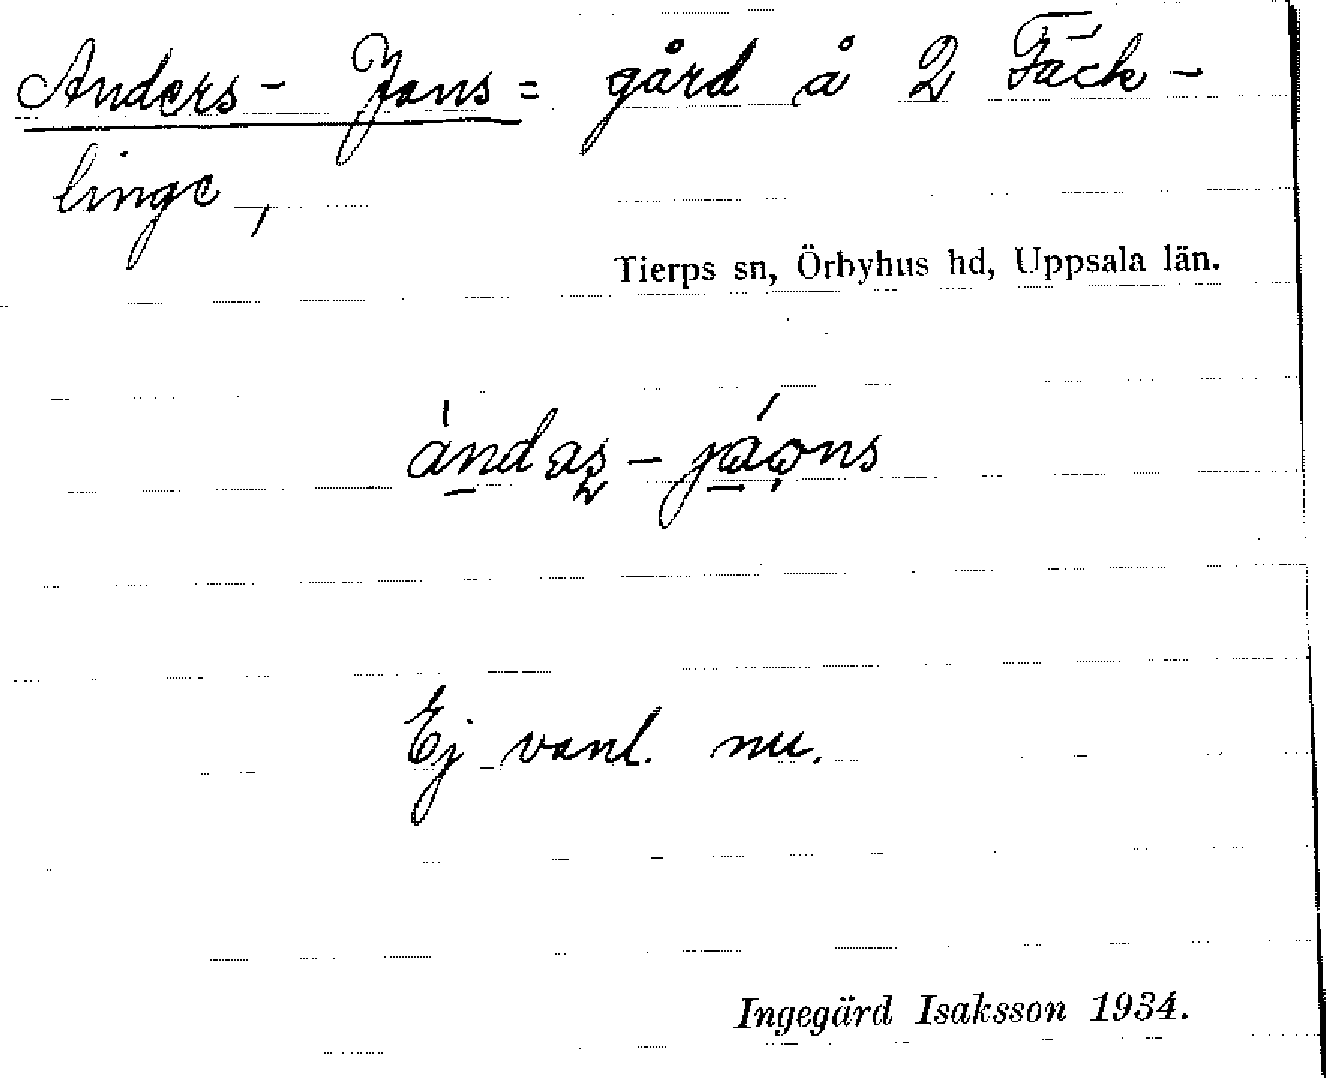 Anders- Jans= gård å 2 Fäck-
linge,
Tierps sn, Örbyhus hd, Uppsala län.
Ej vanl. nu.
Ingegärd Isaksson 1934.